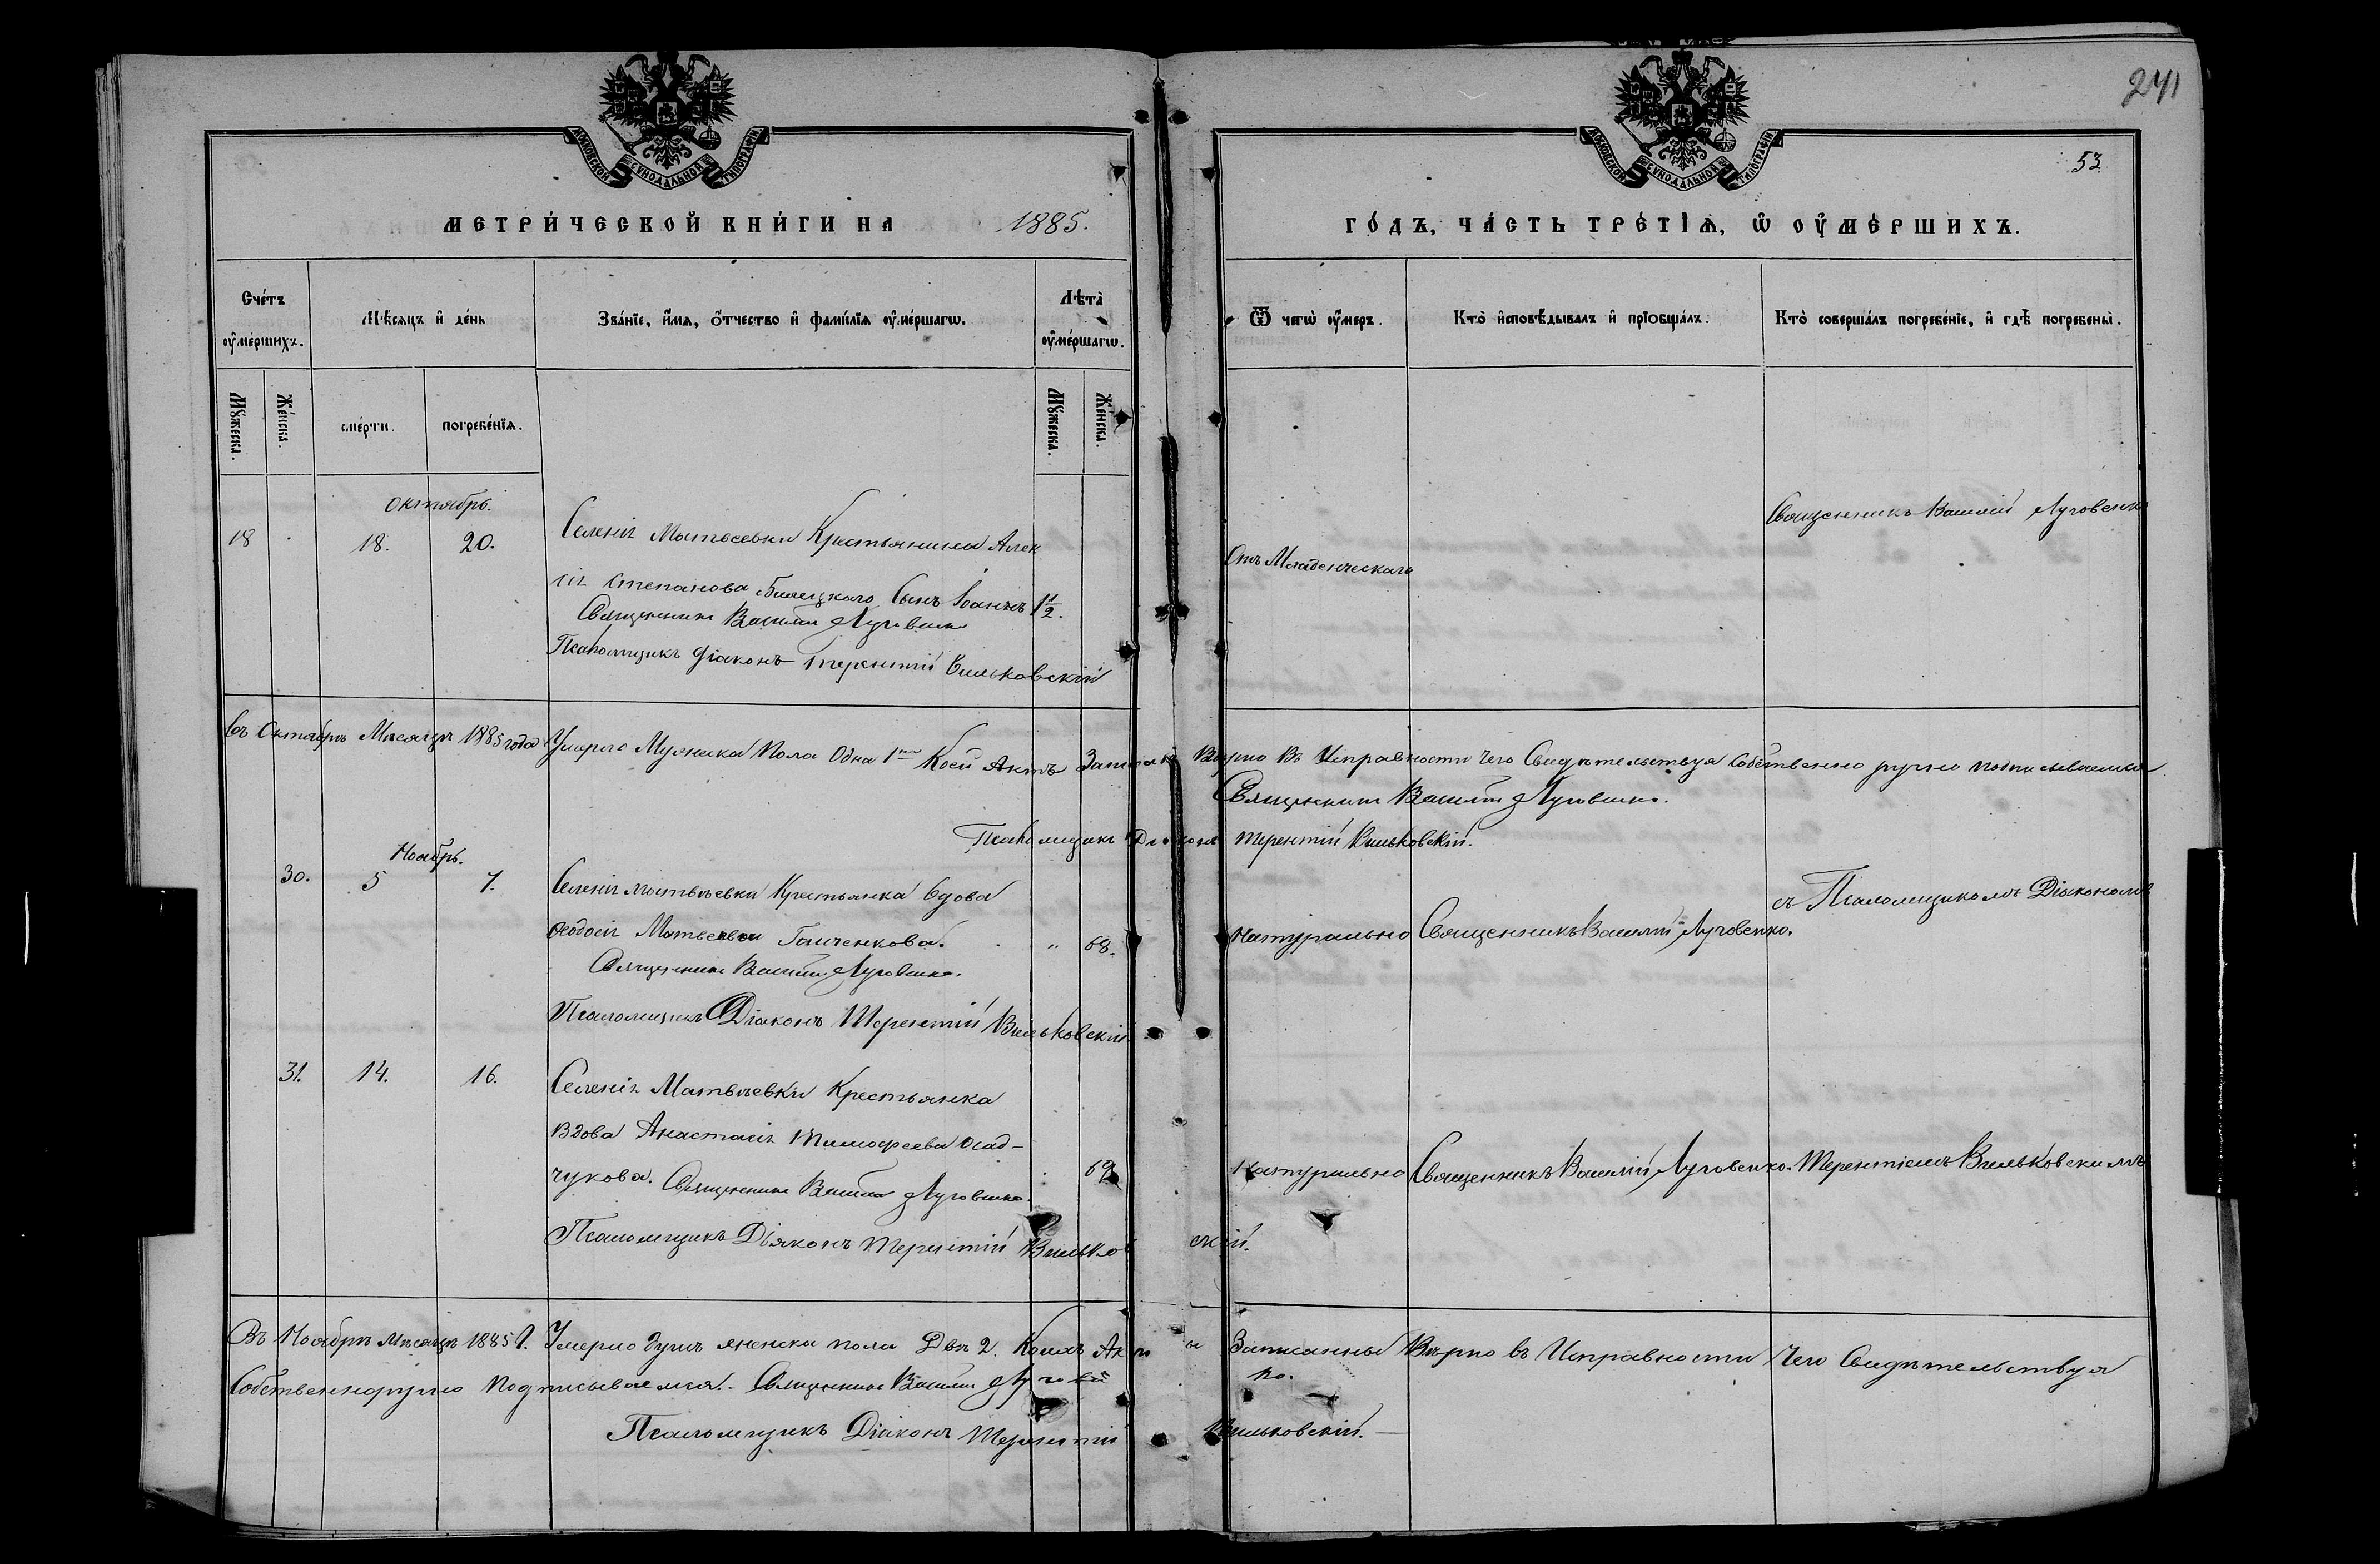 241
МОСКОВСКОЙ СУНОДАЛЬНОЙ ТИПОГРАФІИ
МОСКОВСКОЙ СУНОДАЛЬНОЙ ТИПОГРАФІИ
53
МЕТРИ́ЧЕСКОЙ КНИ́ГИ НА 1885.
ГО́ДЪ, ЧА́СТЬ ТРЕ́ТІѦ, Ѿ ОУ҆МЕ́РШИХЪ.
Сче́тъ оу҆ме́ршихъ.
Мѣ́сяцъ и҆ де́нь
Зва́нїе, и҆́мѧ, ѻ҆́тчество и҆ фами́лїѧ оу҆ме́ршагѡ.
Лѣта̀ оу҆ме́ршагѡ.
Ѿ чегѡ̀ оу҆́меръ.
Кто̀ и҆сповѣ́дывалъ и҆ прїѻбща́лъ.
Кто̀ соверша́лъ погребе́нїе, и҆ гдѣ̀ погребены̀.
Мꙋ́жеска.
Же́нска.
сме́рти.
погребе́нїѧ.
Мꙋ́жеска.
Же́нска.
Октябрь.
18 18. 20. Селенія Матвеевки Крестьянина Алек
сія Степанова Билецкаго Сынъ Іоаннъ 1 1/2.
Священникъ Василій Луговенко
Псаломщикъ Діаконъ Терентій Вильковскій
Отъ Младенческаго
Священникъ Василій Луговенко
Въ Октябрѣ Мѣсяцѣ 1885 года Умерло Мужеска Пола Одна 1 Коей Актъ Записанъ Вѣрно Въ Исправности Чего Свидѣтельствуя Собственно ручно подписываемся
Священникъ Василій Луговенко.
Псаломщикъ Діаконъ Терентій Вильковскій.
Ноябрь.
30. 5 7. Селенія Матвѣевки Крестьянка Вдова
Ѳеодосія Матвеева Ганченкова. " 68.
Священникъ Василій Луговенко.
Псаломщикъ Діаконъ Терентій Вильковскій
Натурально Священникъ Василій Луговенко.
съ Псаломщикомъ Діакономъ
31. 14. 16. Селенія Матвѣевки Крестьянка
Вдова Анастасія Тимофеева Осад-
чукова. Священникъ Василій Луговенко. 69
Псаломщикъ Діяконъ Терентій Вильковскій.
Натурально Священникъ Василій Луговенко. Терентіемъ Вильковскимъ
Въ Ноябрѣ Мѣсяцѣ 1885 г. Умерло душъ женска пола Двѣ 2. Коихъ Акты Записанны Вѣрно въ Исправности Чего Свидѣтельствуя
Собственноручно Подписываемся. Священникъ Василій Луговенко.
Псаломщикъ Діаконъ Терентій Вильковскій.